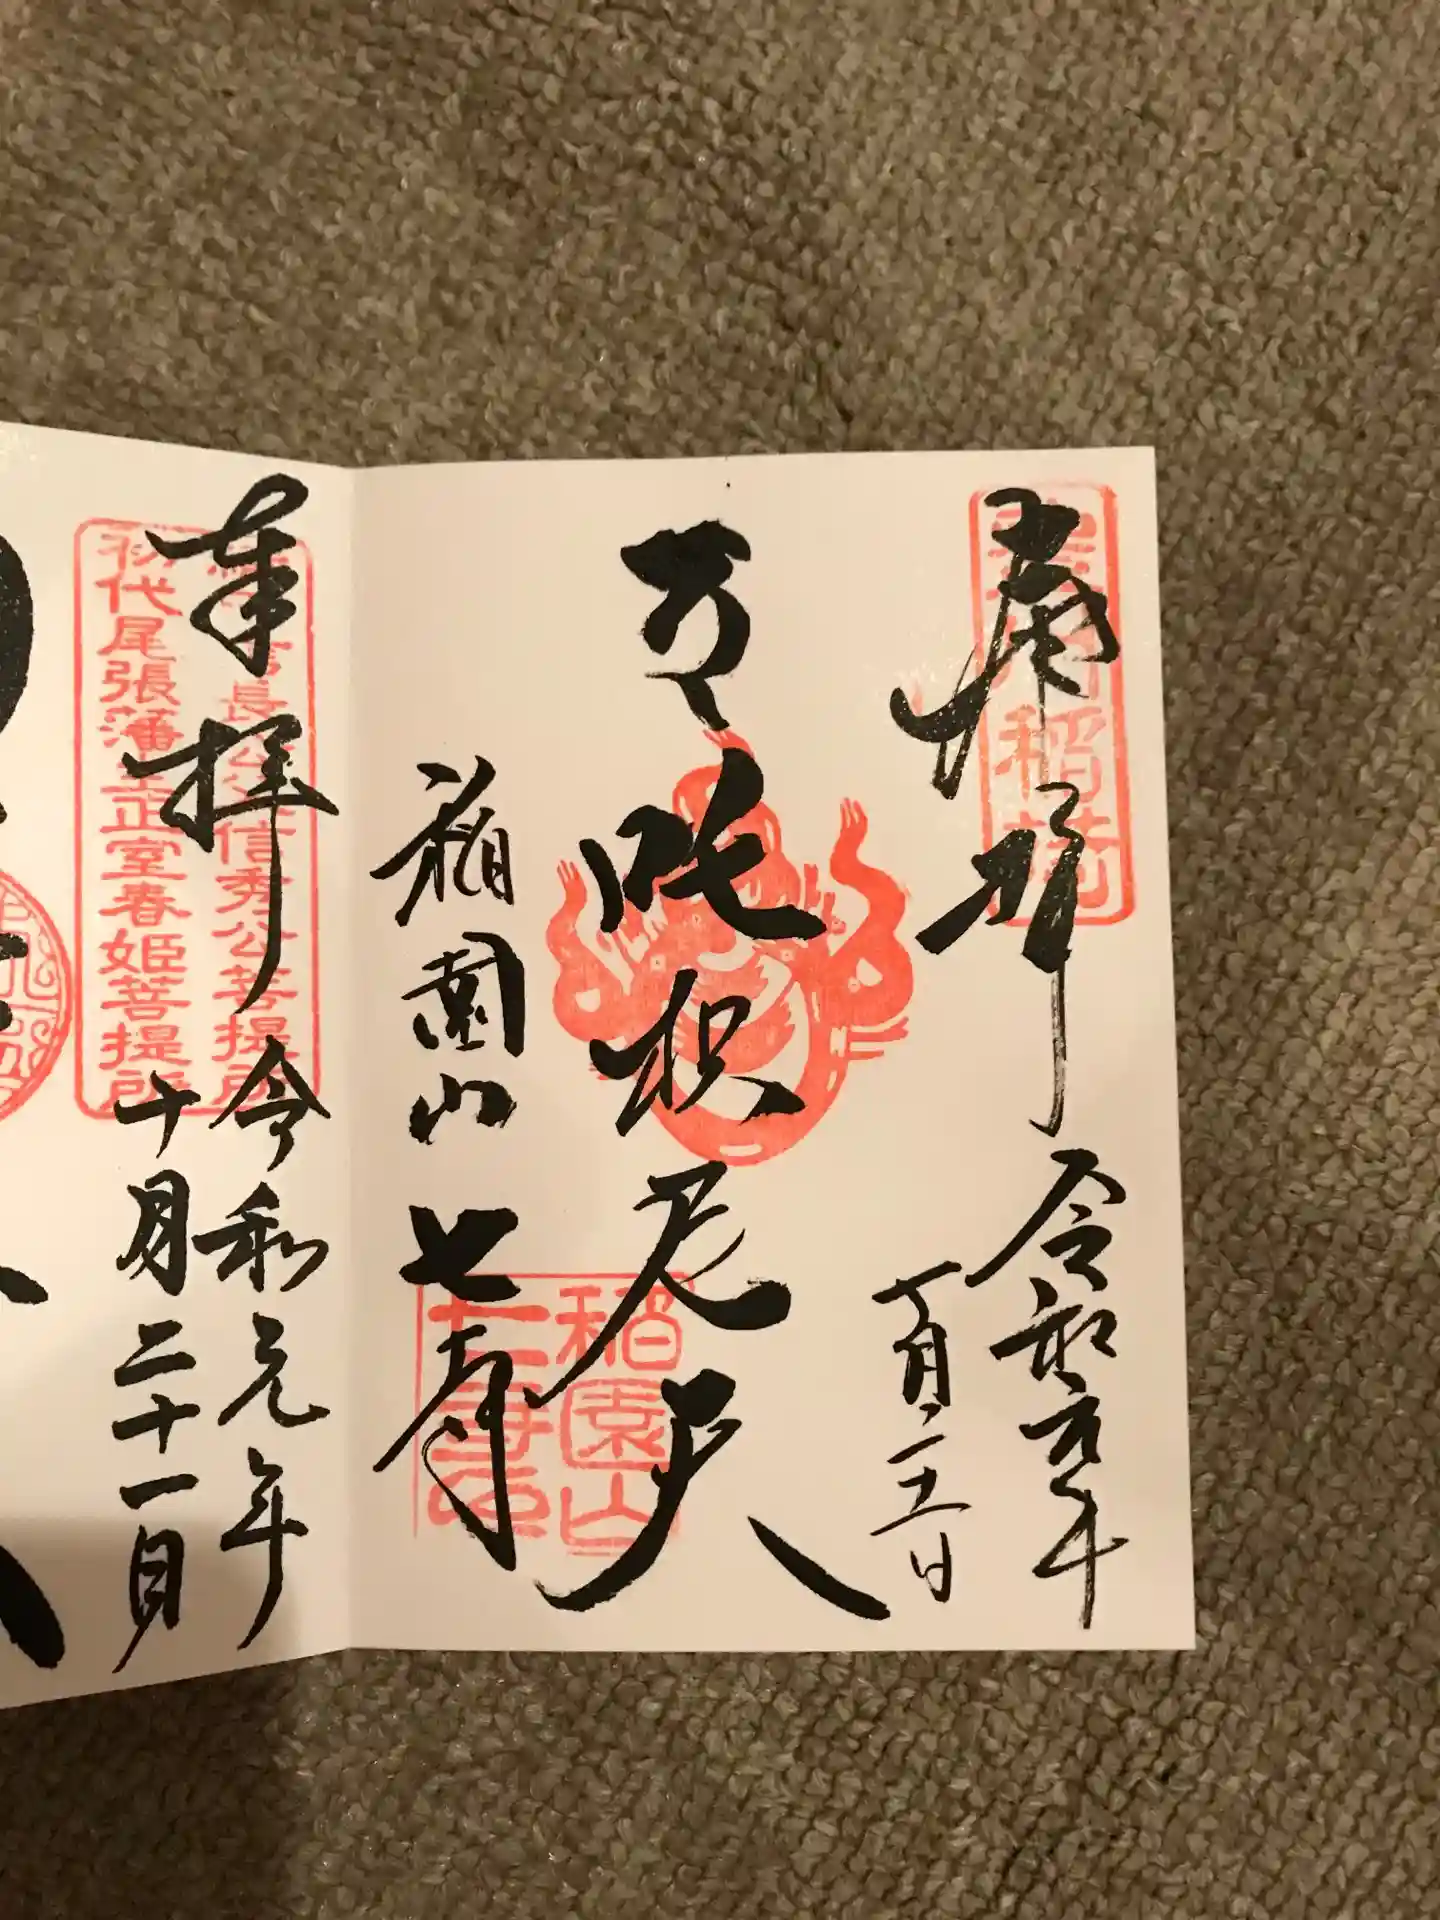 奉拝
稲荷
令和元年
十月二十一日
吒枳尼天
稲園山 七寺
稲園山
七寺印
奉拝
令和元年
十月二十一日
信長公父信秀公菩提所
初代尾張藩主正室春姫菩提所